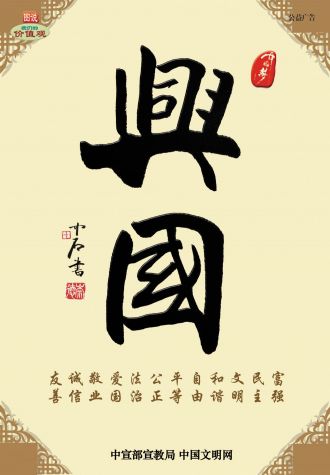 图说
我们的
价值观
公益广告
中国梦
興國
中石書
富强
民主
文明
和谐
自由
平等
公正
法治
爱国
敬业
诚信
友善
中宣部宣教局 中国文明网